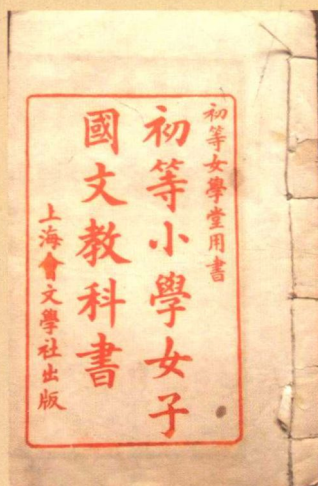 初等女學堂用書
初等小學女子
國文教科書
上海會文學社出版